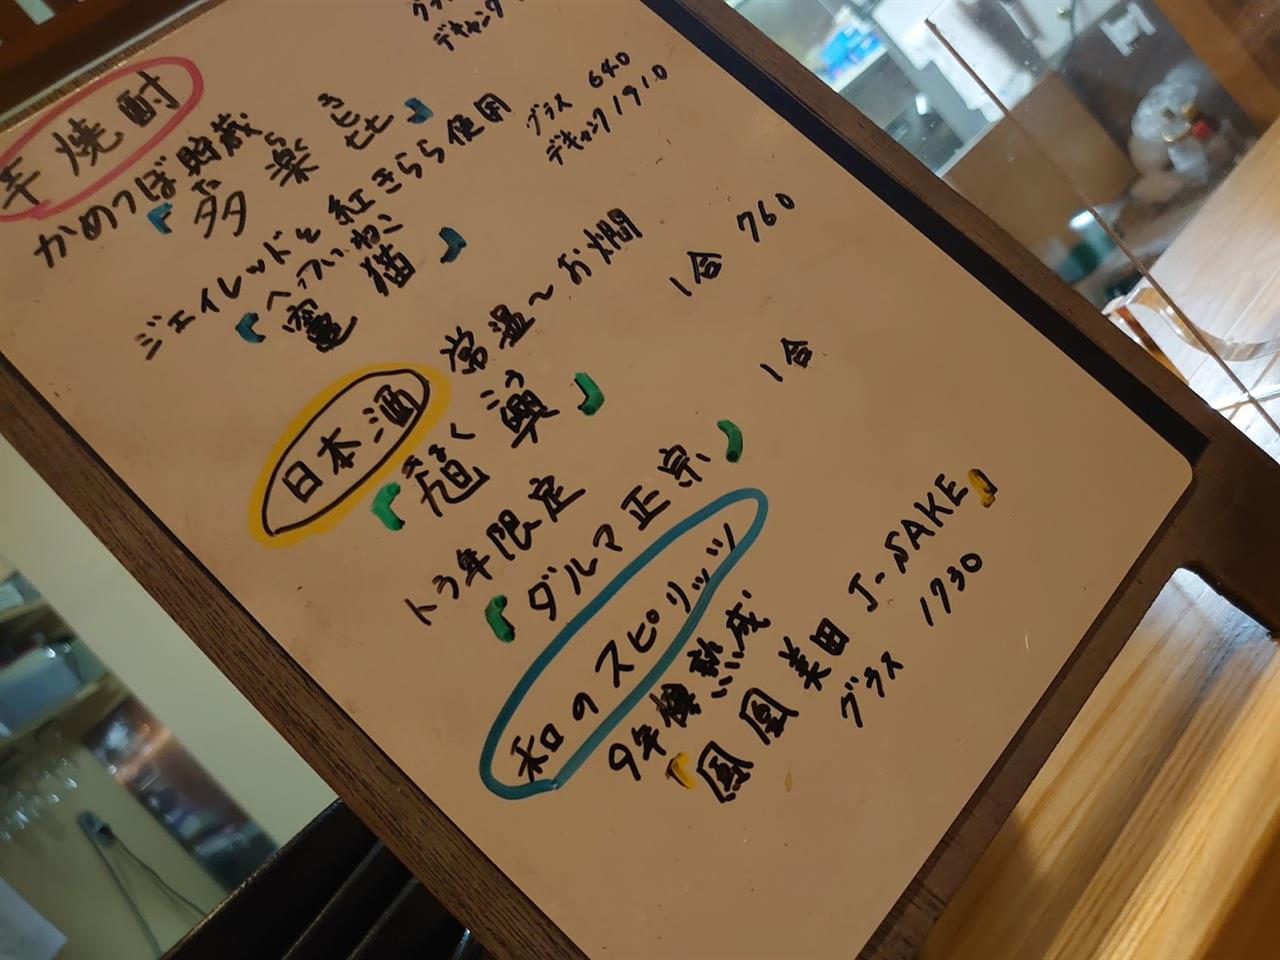 グラス
デキャンタ
芋焼酎
かめつぼ貯蔵
『多楽』
ジェイレッドと紅きらら使用
へっついねこ
『竈猫』
グラス 640
デキャンタ 1910
日本酒
常温〜お燗
きょくこう
『旭興』
1合 760
トラ年限定
『ダルマ正宗』
1合
和のスピリッツ
9年樽熟成
『鳳凰美田 J-SAKE』
グラス 1730